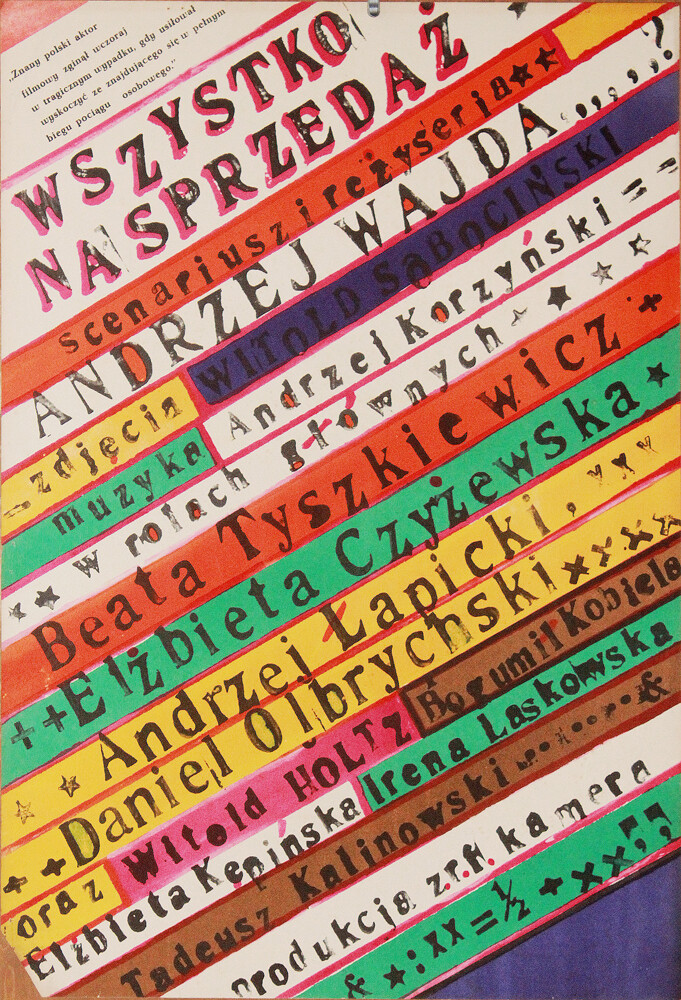 „Znany polski aktor
filmowy zginął wczoraj
w tragicznym wypadku, gdy usiłował
wyskoczyć ze znajdującego się w pełnym
biegu pociągu osobowego.”
WSZYSTKO
NA SPRZEDAŻ
scenariusz i reżyseria ★★
ANDRZEJ WAJDA.....,,?
zdjęcia WITOLD SOBOCIŃSKI
muzyka Andrzej Korzyński ==
★★ w rolach głównych ★ ★ ★ ★
Beata Tyszkiewicz +
++Elżbieta Czyżewska ★
★ ★ Andrzej Łapicki, ,,,
++Daniel Olbrychski xxxxx
oraz Witold HOLTZ Bogumił Kobiela
Elżbieta Kępińska Irena Laskowska
Tadeusz Kalinowski ......... &
produkcja z.r.f. kamera
& ★ : xx = ½ + xx ,, ;